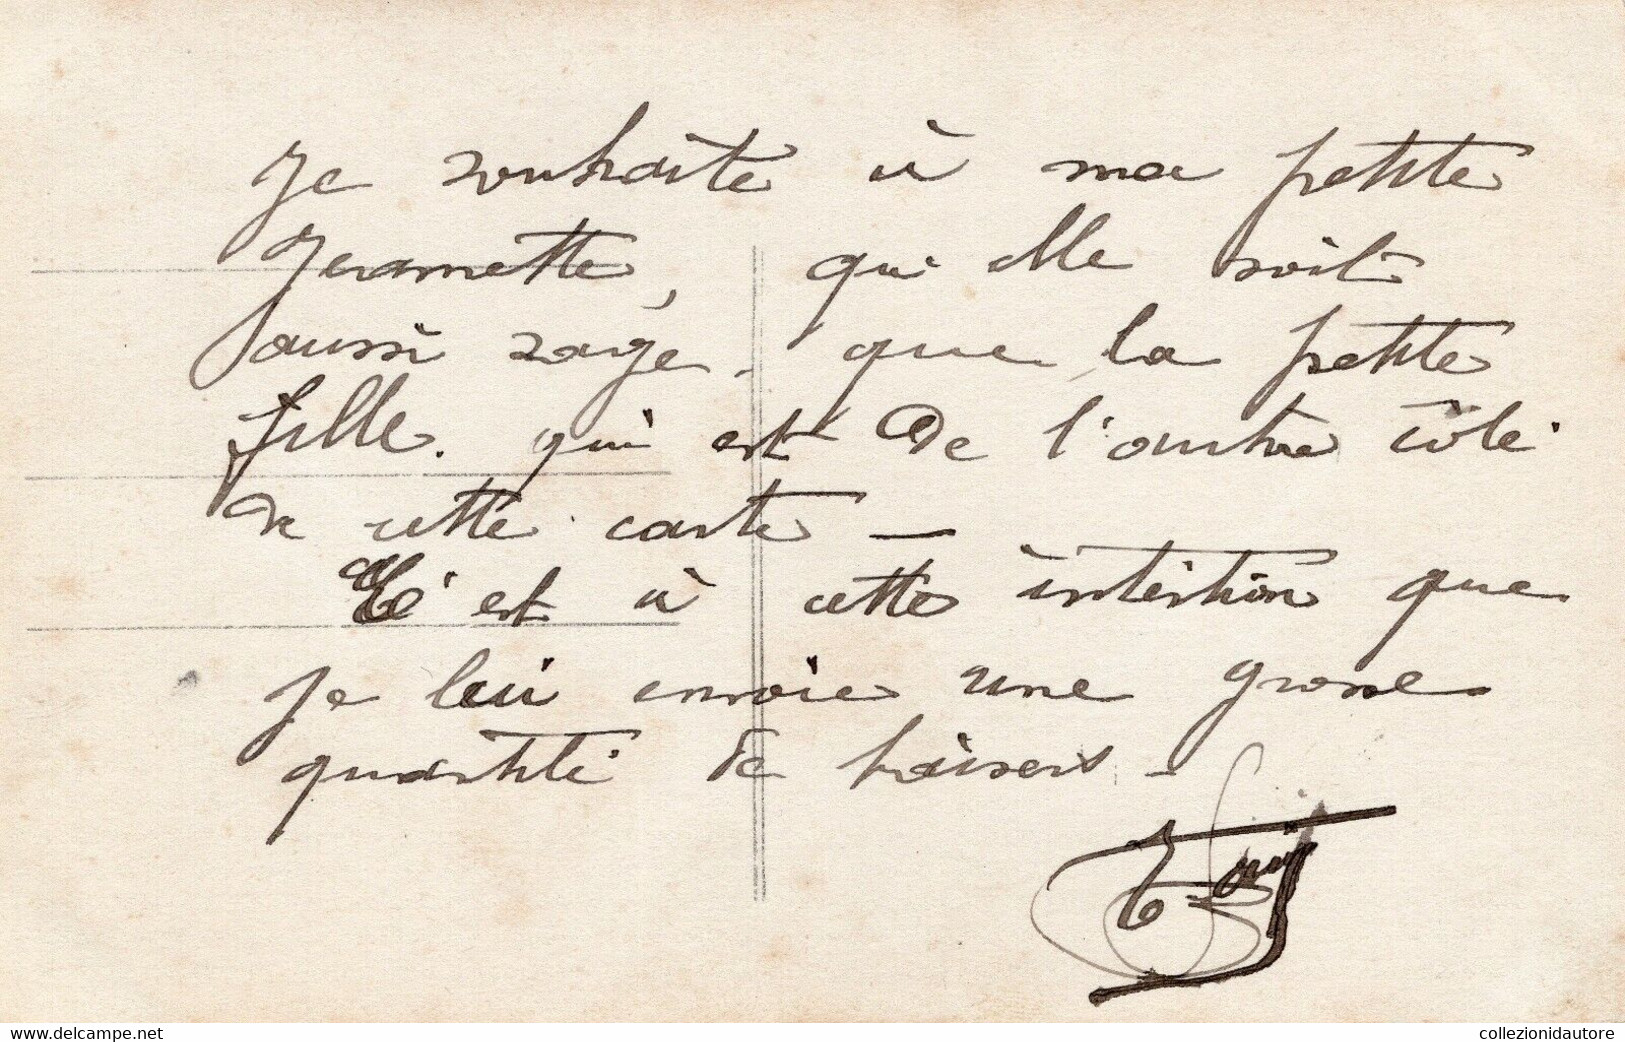 Je souhaite à ma petite
Jeannette, qu'elle soit
aussi sage. que la petite
fille. qui est de l'autre côté
de cette carte —
C'est à cette intention que
je lui envoie une grosse
quantité de baisers -
delcampe.net
collezionidautore